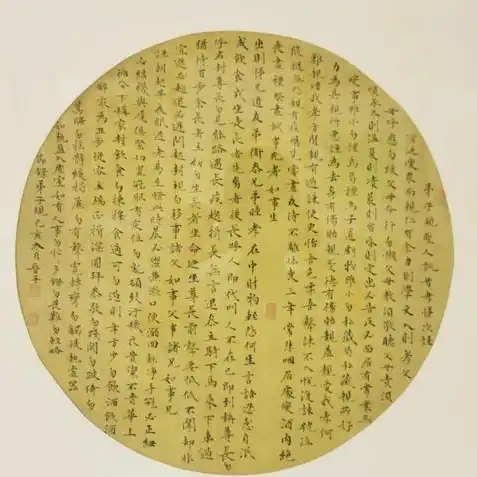 弟子規聖人訓首孝悌次謹
信泛愛衆而親仁有餘力則學文入則孝父
母呼應勿緩父母命行勿懶父母教須敬聽父母責須
順承冬則溫夏則凊晨則省昏則定出必告反必面居有常業無
變事雖小勿擅為苟擅為子道虧物雖小勿私藏苟私藏親所好
力為具親所惡謹為去身有傷貽親憂德有傷貽親羞親愛我孝何
難親憎我孝方賢親有過諫使更怡吾色柔吾聲諫不入悅復諫號泣
隨撻無怨親有疾藥先嘗晝夜侍不離床喪三年常悲咽居處變酒肉絕
喪盡禮祭盡誠事死者如事生
出則悌兄道友弟道恭兄弟睦孝在中財物輕怨何生言語忍忿自泯
或飲食或坐走長者先幼者後長呼人即代叫人不在己即到稱尊長勿
呼名對尊長勿見能路遇長疾趨揖長無言退恭立騎下馬乘下車過
猶待百步餘長者立幼勿坐長者坐命乃坐尊長前聲要低低不聞卻非
宜進必趨退必遲問起對視勿移事諸父如事父事諸兄如事兄
謹朝起早夜眠遲老易至惜此時晨必盥兼漱口便溺回輒淨手冠必正紐
必結襪與履俱緊切置冠服有定位勿亂頓致污穢衣貴潔不貴華上
循分下稱家對飲食勿揀擇食適可勿過則年方少勿飲酒飲酒
醉最為醜步從容立端正揖深圓拜恭敬勿踐閾勿跛倚勿
箕踞勿搖髀緩揭簾勿有聲寬轉彎勿觸棱執虛器
如執盈入虛室如有人事勿忙忙多錯勿畏難勿輕略
節錄弟子規己亥冬月